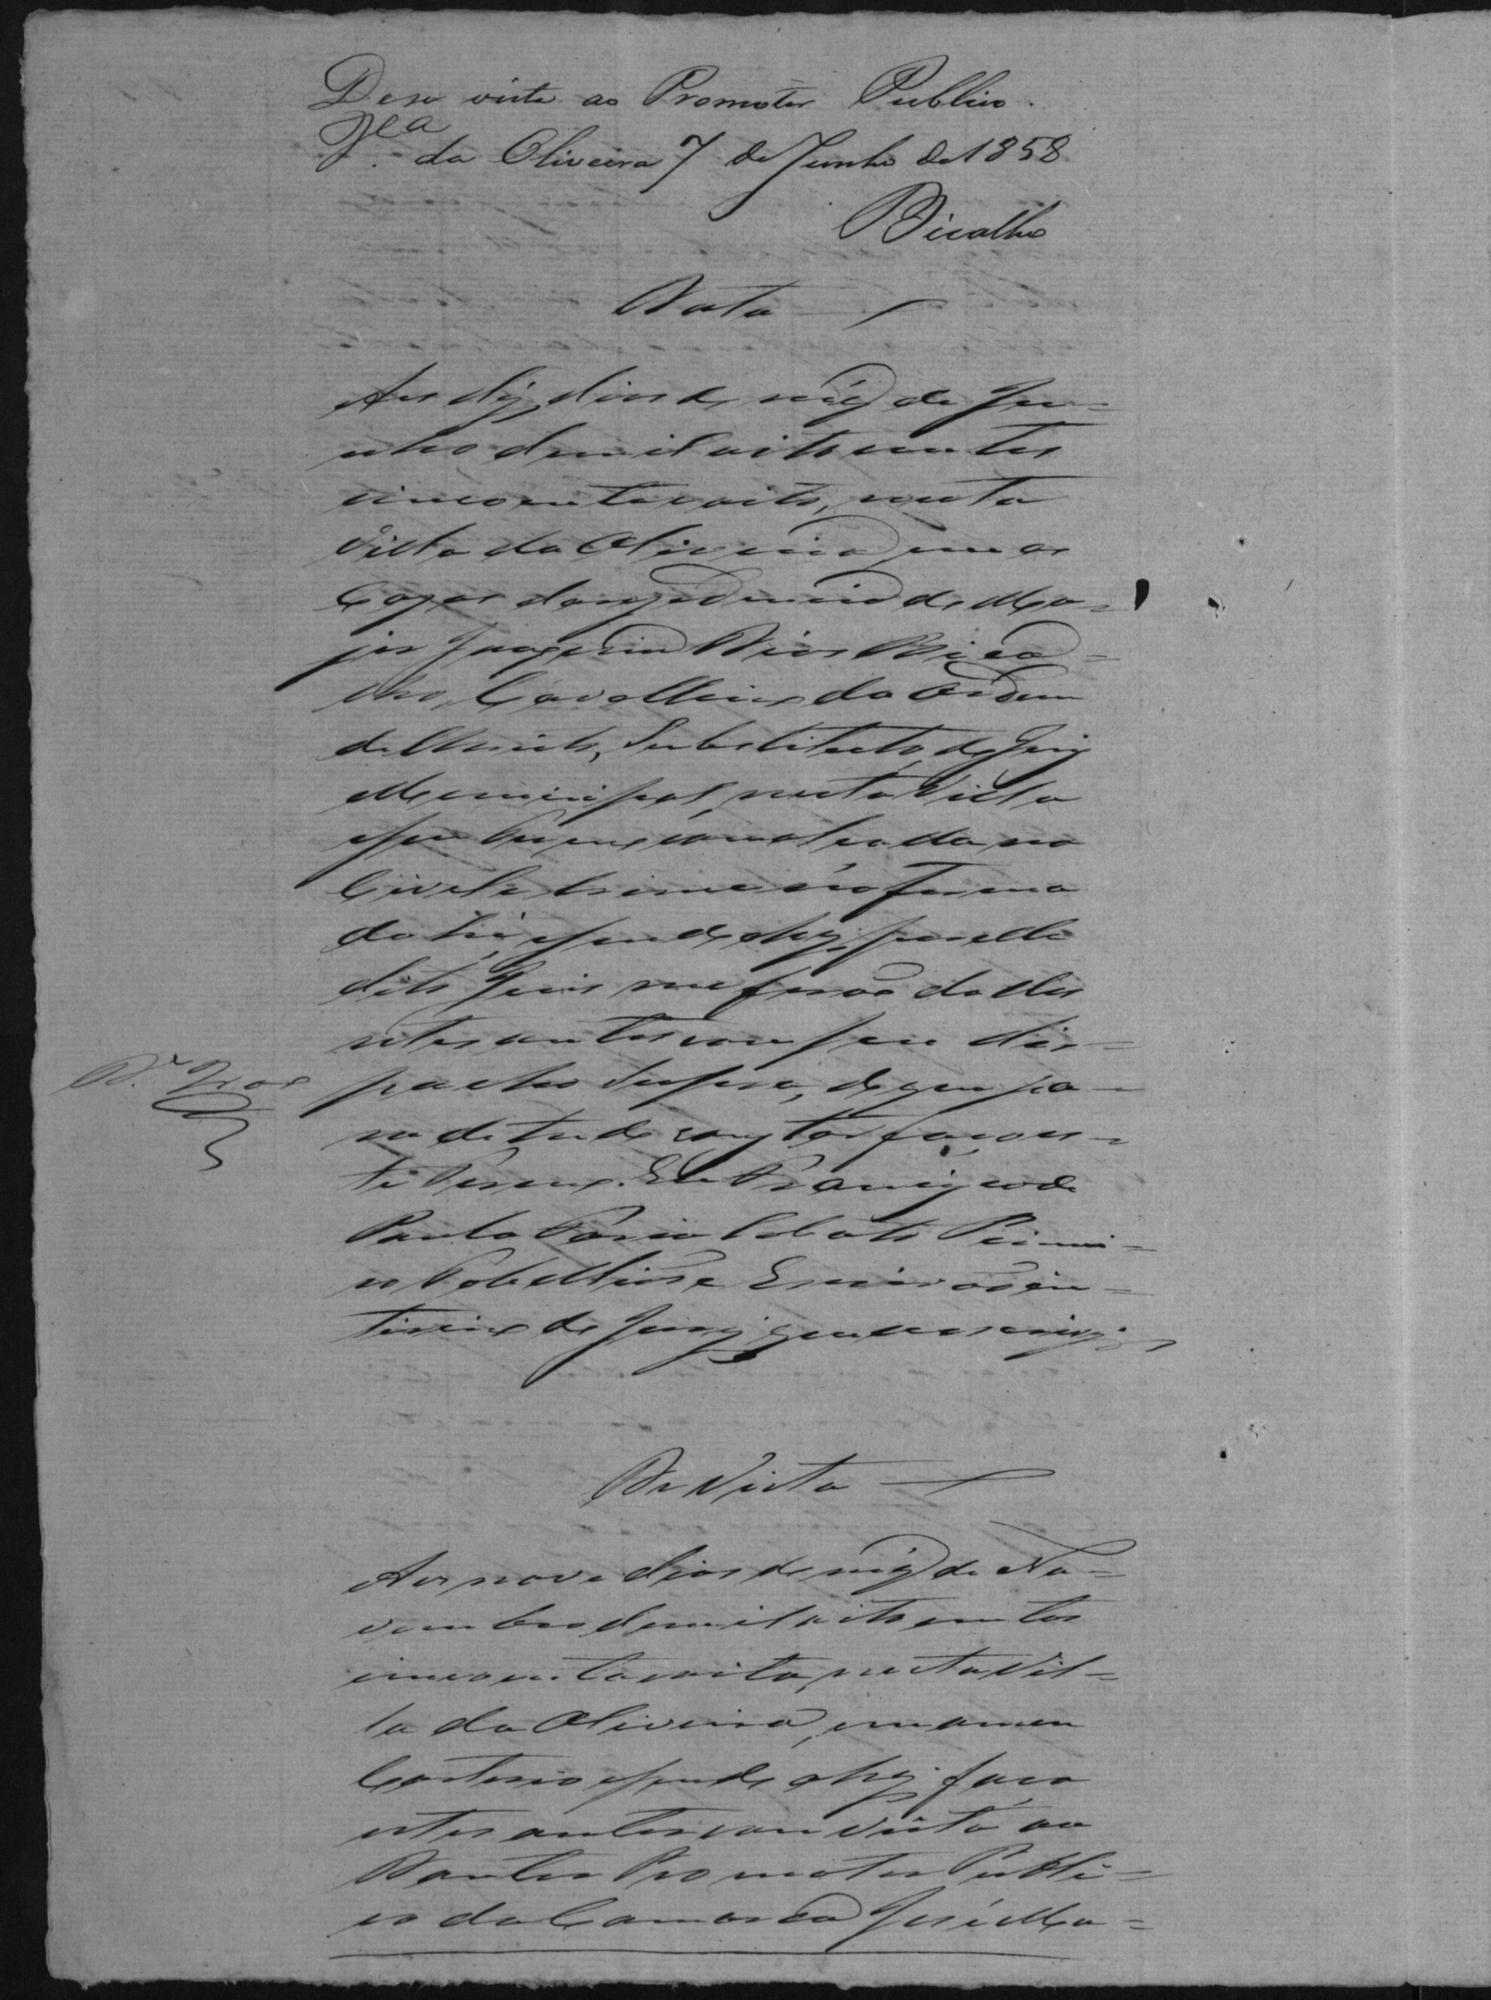 Dese vista ao Promotor Publico.
Va da Oliveira 7 de Junho de 1858
Bicalho
Data
Aos dias do mez de Ju=
nho de mil oito centos
cincoenta e oito, nesta
Villa da Oliveira em as
Cazas da rezidencia do Ma=
jor Joaquim Dias Bica=
lho, Cavalleiro da Ordem
de Christo, Substituto do Juiz
Municipal nesta Villa
e seu Termo com alçada no
Civel e Crime na forma
da Lei, e sendo ahy por elle
dito Juis me forão dados
estes autos com seu des=
pacho supra, de que pa=
ra de tudo constar faço es=
te Termo. Eu Francisco de
Paula Lobato Primei=
ro Tabellião e Escrivão in=
terino do Jury que o escrevy
De Vista
Aos nove dias do mez de No=
vembro de mil oito centos
cincoenta e oito, nesta Vil=
la da Oliveira, em o meu
Cartorio e sendo ahy faço
estes autos com vista ao
Doutor Promotor Publi=
co da Comarca José Ma=